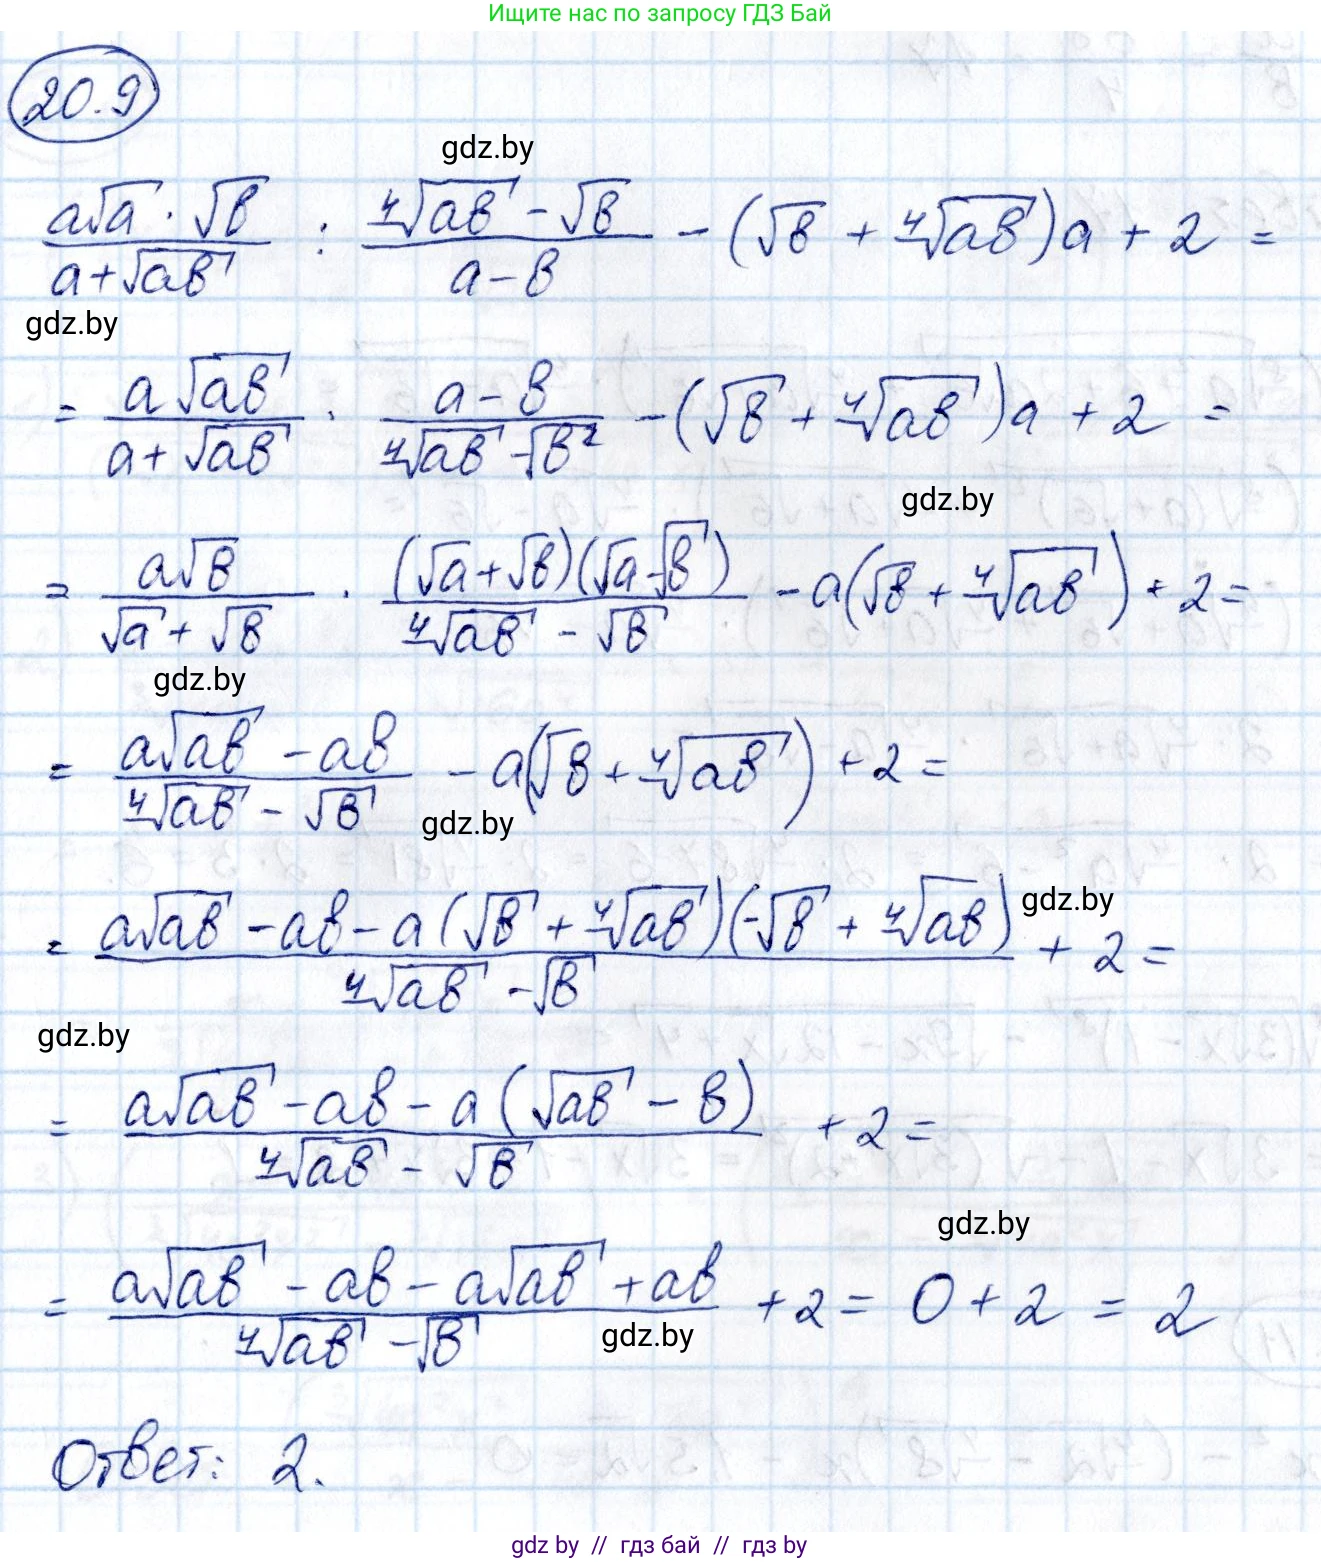 Ищите нас по запросу ГДЗ Бай
20.9
gdz.by
a√a · √b / a+√ab : ∜ab - √b / a-b - (√b + ∜ab)a + 2 =
gdz.by
= a√ab / a+√ab · a-b / ∜ab - √b² - (√b + ∜ab)a + 2 =
gdz.by
= a√b / √a + √b · (√a+√b)(√a-√b) / ∜ab - √b - a(√b + ∜ab) + 2 =
gdz.by
= a√ab - ab / ∜ab - √b - a(√b + ∜ab) + 2 =
gdz.by
gdz.by
= a√ab - ab - a(√b + ∜ab)(-√b + ∜ab) / ∜ab - √b + 2 =
gdz.by
= a√ab - ab - a(√ab - b) / ∜ab - √b + 2 =
gdz.by
= a√ab - ab - a√ab + ab / ∜ab - √b + 2 = 0 + 2 = 2
gdz.by
Ответ: 2.
gdz.by // гдз бай // гдз by